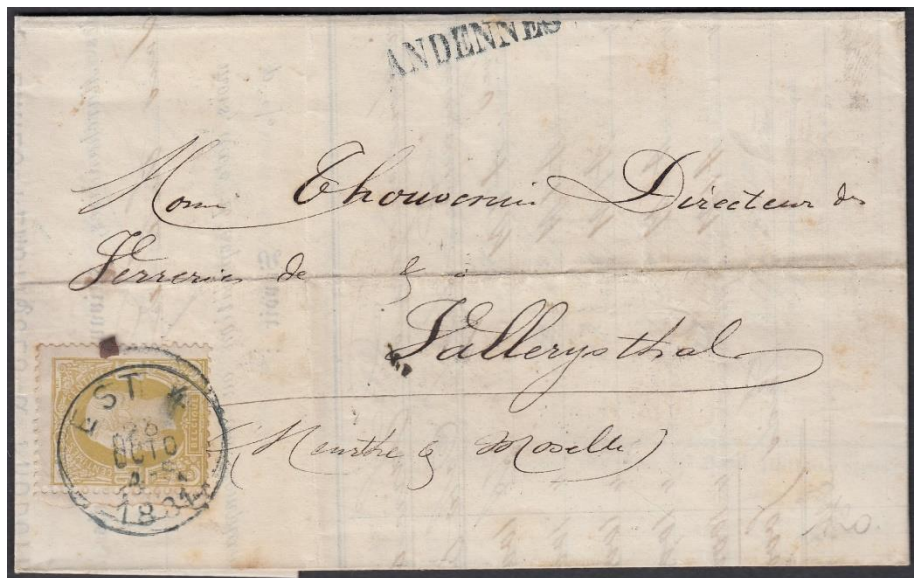 ANDENNES
Monsr Thouvenin Directeur des
Verreries de &
Vallerysthal
(Meurthe & Moselle)
EST 4
26
OCTO
1881